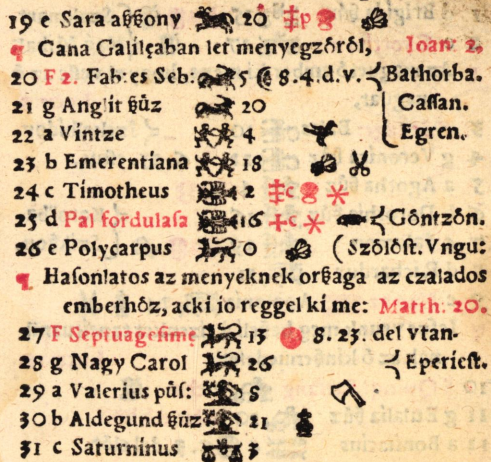 19 e Sara aßßony 20
Cana Galilęaban let menyegzőről, Ioan: 2.
20 F 2. Fab: es Seb: 5 8. 4. d. v. Bathorba.
21 g Angлit ßűz 20 Cassan.
22 a Vintze 4 Egren.
23 b Emerentiana 18
24 c Timotheus 2 c
25 d Pal fordulasa 16 c Gőntzőn.
26 e Polycarpus 0 (Szőlőst. Vngu:
Hasonlatos az menyeknek orßaga az czalados
emberhőz, acki io reggel ki me: Matth: 20.
27 F Septuagesime 13 8. 23. del vtan-
28 g Nagy Carol 26 Eperiest.
29 a Valerius půs: 8
30 b Aldegund ßűz 21
31 c Saturninus 3